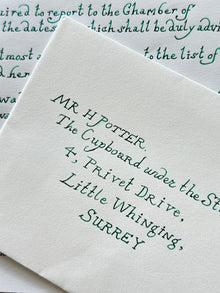 uired to report to the Chamber of
the dates which shall be duly advi
tmost to the list of
d her
wa
MR. H POTTER,
The Cupboard under the St
4, Privet Drive,
Little Whinging,
SURREY